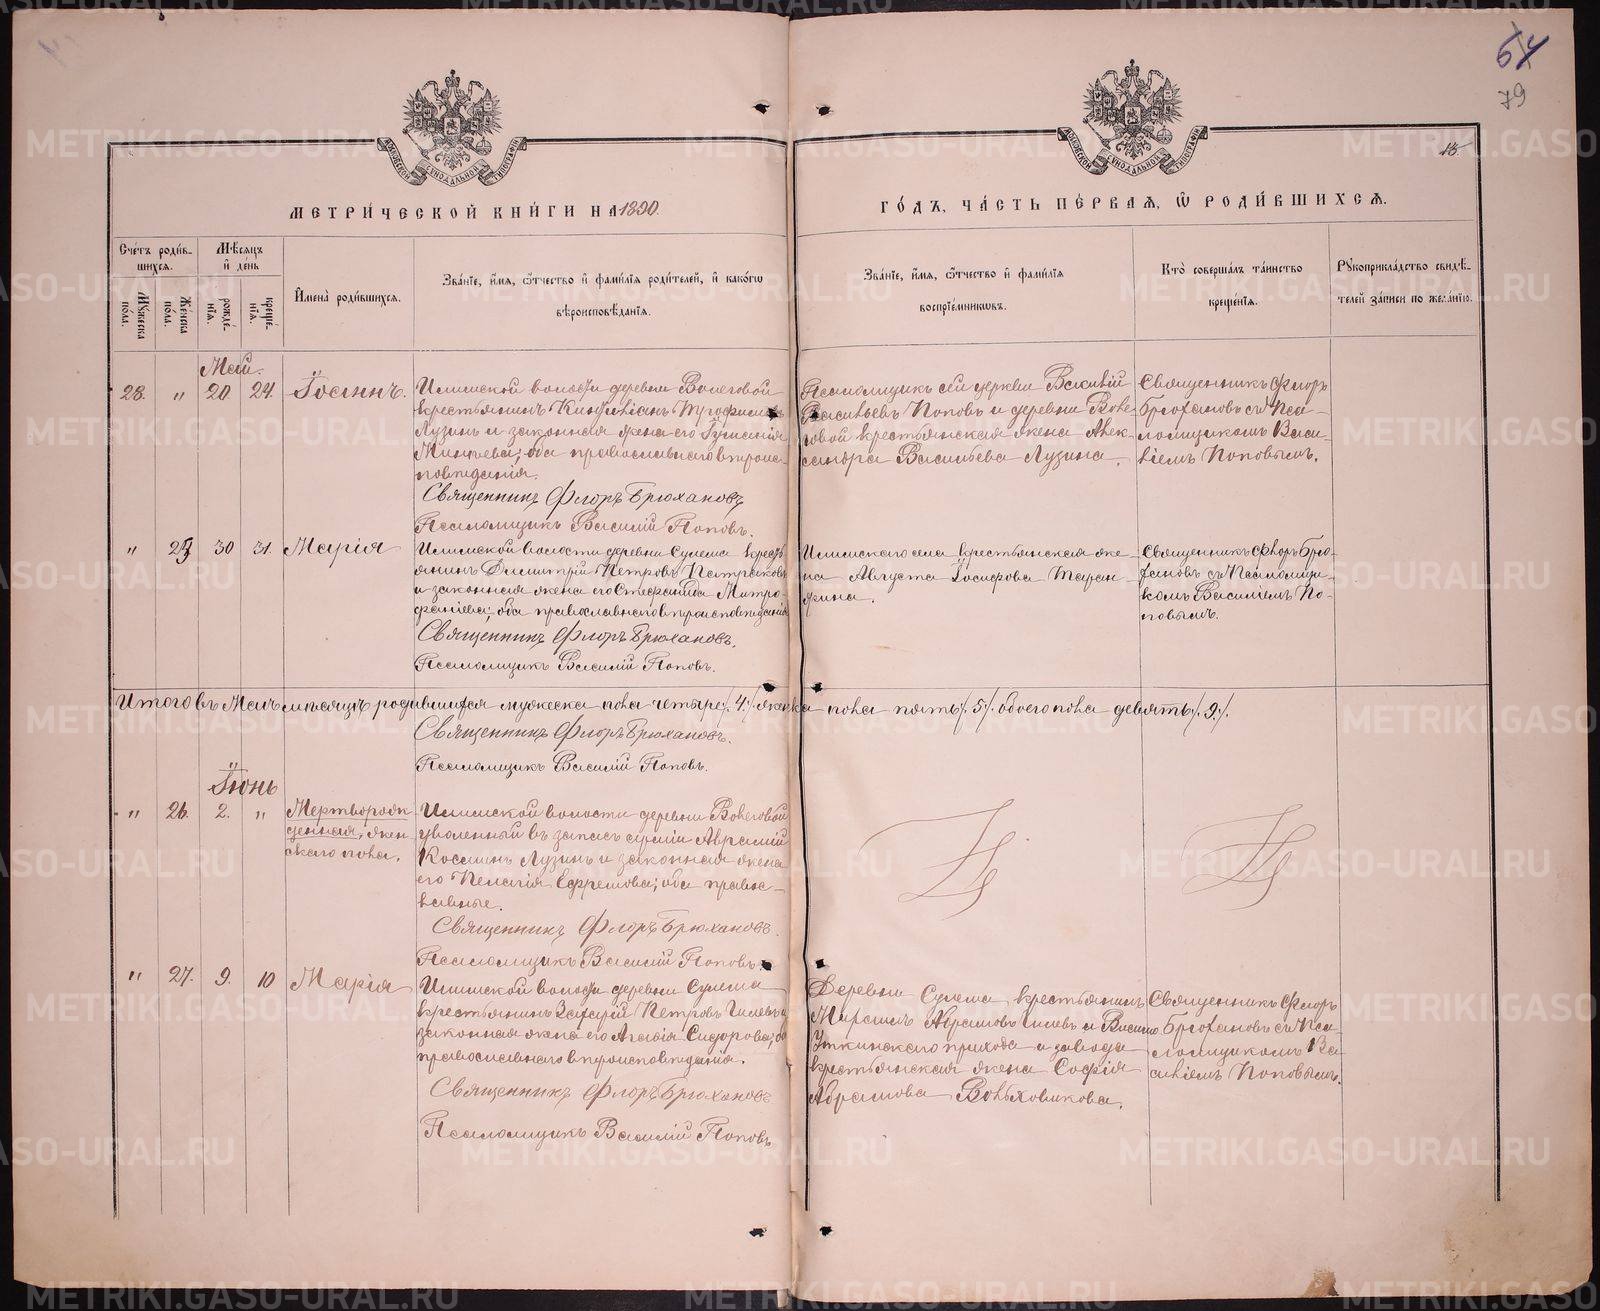 64
79
15
МОСКОВСКОЙ СѴНОДАЛЬНОЙ ТИПОГРАФІИ
МОСКОВСКОЙ СѴНОДАЛЬНОЙ ТИПОГРАФІИ
МЕТРИ́ЧЕСКОЙ КНИ́ГИ НА 1890.
ГО́ДЪ, ЧА́СТЬ ПЕ́РВАЯ, Ѡ҆ РОДИ́ВШИХСЯ.
Сче́тъ роди́в-
шихся.
Му́жеска по́ла.
Же́нска по́ла.
Мѣ́сяцъ
и҆ де́нь
рожде́-
нїя.
креще́-
нїя.
И҆мена̀ роди́вшихся.
Зва́нїе, и҆́мя, ѻ҆́тчество и҆ фами́лїя роди́телей, и҆ како́гѡ
вѣроисповѣ́данїя.
Зва́нїе, и҆́мя, ѻ҆́тчество и҆ фами́лїя
воспрїе́мникѡвъ.
Кто̀ соверша́лъ та́инство
креще́нїя.
Рꙋкоприкла́дство свидѣ́-
телей за́писи по жела́нїю.
Май.
28. " 20 24. Іоаннъ.
Илимской волости деревни Волеговой
крестьянинъ
Лузинъ и законная жена его
Минѣева; оба православнаго вѣроис-
повѣданія.
Священникъ Флоръ Брюхановъ
Псаломщикъ Василій Поповъ.
Псаломщикъ сей церкви Василій
Васильевъ Поповъ и деревни Воле-
говой крестьянская жена Алек-
сандра Васильева Лузина.
Священникъ Флоръ
Брюхановъ съ Пса-
ломщикомъ Васи-
ліемъ Поповымъ.
" 25 30 31. Марія
Илимской волости деревни Сулема крест
янинъ Димитрій Петровъ Патраковъ
и законная жена его Стефанида Митро-
фаніева; оба православнаго вѣроисповѣданія
Священникъ Флоръ Брюхановъ.
Псаломщикъ Василій Поповъ.
Илимскаго села крестьянская же-
на Августа Іосифова Таран-
жина.
Священникъ Флоръ Брю-
хановъ съ Псаломщи-
комъ Василіемъ По-
повымъ.
Итого въ Маѣ мѣсяцѣ родившихся мужеска пола четыре /.4./ женска пола пять /.5./ обоего пола девять /.9./.
Священникъ Флоръ Брюхановъ.
Псаломщикъ Василій Поповъ.
Іюнь
" 26. 2. " Мертворож
денная, жен-
скаго пола.
Илимской волости деревни Волеговой
уволенный въ запасъ арміи Аврамій
Косминъ Лузинъ и законная жена
его Пелагія Ефремова; оба правос-
лавные.
Священникъ Флоръ Брюхановъ.
Псаломщикъ Василій Поповъ.
" 27. 9. 10 Марія
Илимской волости деревни Сулема
крестьянинъ Захарій Петровъ Гилевъ и
законная жена его Агафія Сидорова; оба
православнаго вѣроисповѣданія.
Священникъ Флоръ Брюхановъ
Псаломщикъ Василій Поповъ
Деревни Сулема крестьянинъ
Аврамовъ Гилевъ и
Уткинскаго прихода и завода
крестьянская жена Софія
Абрамова Вольховикова.
Священникъ Флоръ
Брюхановъ съ Пса-
ломщикомъ Ва-
силіемъ Поповымъ.
METRIKI.GASO-URAL.RU